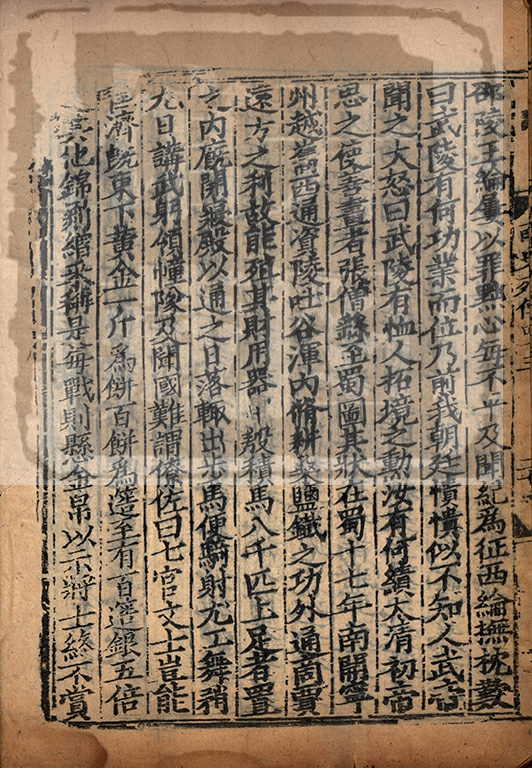 邵陵王綸屢以罪黜心每不平及聞紀為征西綸撫枕歎
曰武陵有何功業而位乃前我朝廷憒憒似不知人武帝
聞之大怒曰武陵有恤人拓境之勳汝有何績大清初帝
思之使善畫者張僧繇至蜀圖其狀在蜀十七年南開寧
州越嶲西通資陵吐谷渾內脩耕桑鹽鐵之功外通商賈
遠方之利故能殖其財用器甲殷積馬八千匹上足者置
之內廄開寢殿以通之日落輙出步馬便騎射尤工舞矟
九日講武躬領幢隊及聞國難謂僚佐曰七官文士豈能
匡濟旣東下黄金一斤為餅百餅為簉至有百簉銀五倍
其他錦罽繒采稱是每戰則縣金帛以示將士終不賞